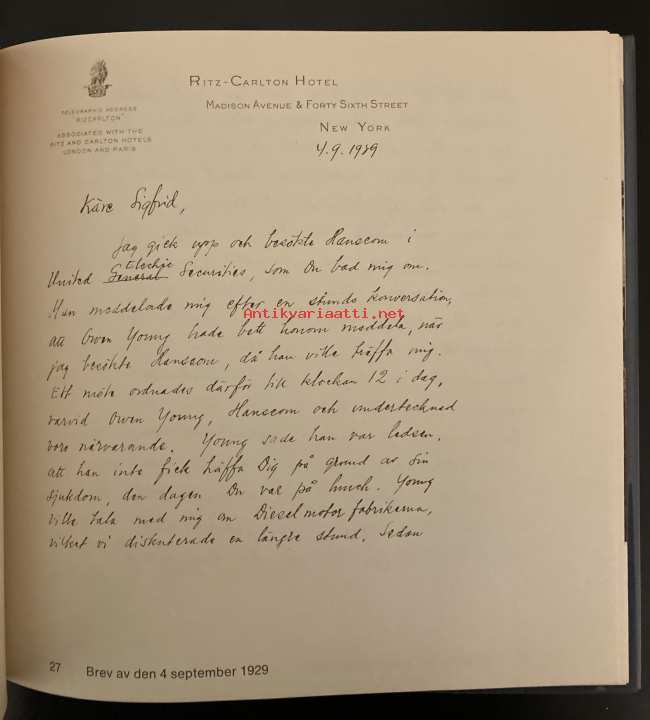 RITZ-CARLTON HOTEL
MADISON AVENUE & FORTY SIXTH STREET
NEW YORK
TELEGRAPHIC ADDRESS
"RIZCARLTON"
ASSOCIATED WITH THE
RITZ AND CARLTON HOTELS
LONDON AND PARIS
4.9.1929
Käre Sigfrid,
Jag gick upp och besökte Hanscom i
Electric
United General Securities, som Du bad mig om.
Han meddelade mig efter en stunds konversation,
Antikvariaatti.net
att Owen Young hade bett honom meddela, när
jag besökte Hanscom, då han ville träffa mig.
Ett möte ordnades därför till klockan 12 i dag,
varvid Owen Young, Hanscom och undertecknad
voro närvarande. Young sade han var ledsen,
att han inte fick träffa Dig på grund av sin
sjukdom, den dagen Du var på lunch. Young
ville tala med mig om Dieselmotorfabrikerna,
vilket vi diskuterade en längre stund. Sedan
27 Brev av den 4 september 1929